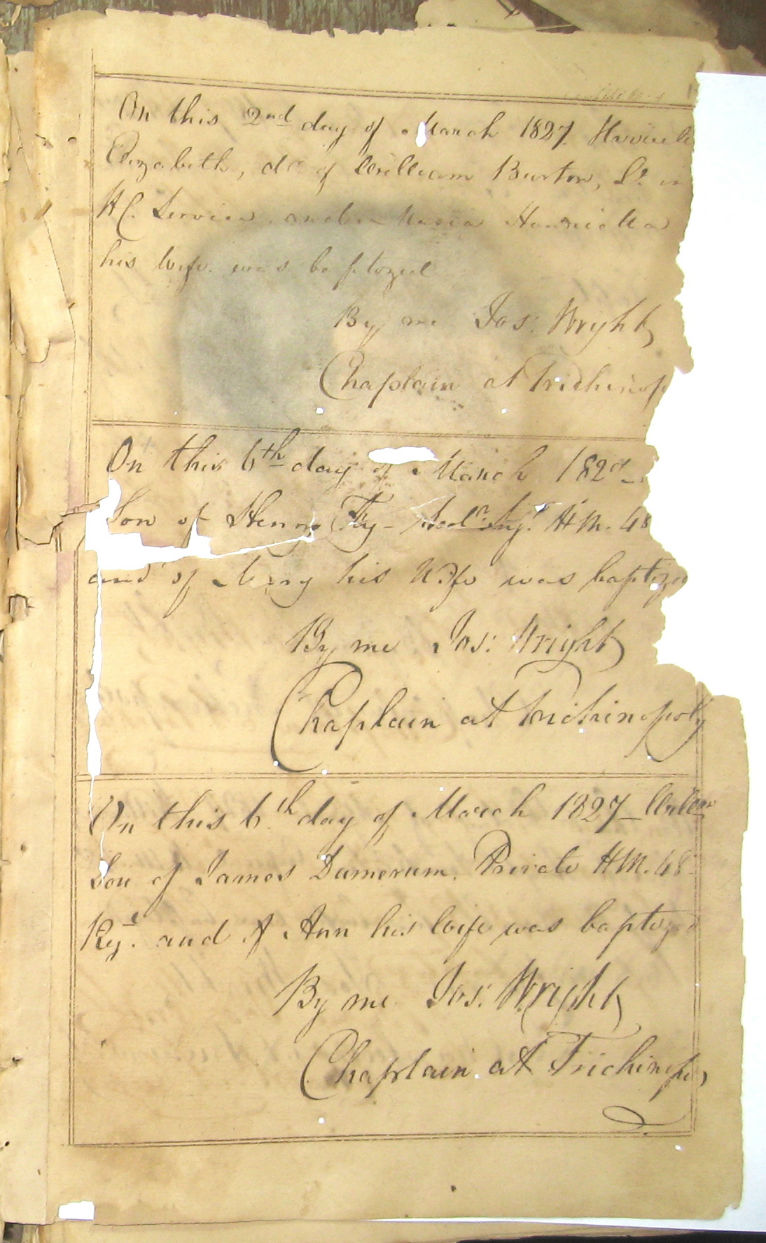 On this 2nd day of March 1827
Elizabeth, dr. of William Burton, Lt. in
H.C. Service and Maria Henrietta
his Wife was baptized
By me Jos: Wright
Chaplain at Trichinop
On this 6th day of March 1827
Son of Henry Fry HM. 48
and of Mary his Wife was baptized
By me Jos: Wright
Chaplain at Trichinopoly
On this 6th day of March 1827
Son of James Damerum, Private HM. 48
Regt. and of Ann his Wife was baptized
By me Jos: Wright
Chaplain at Trichinopoly